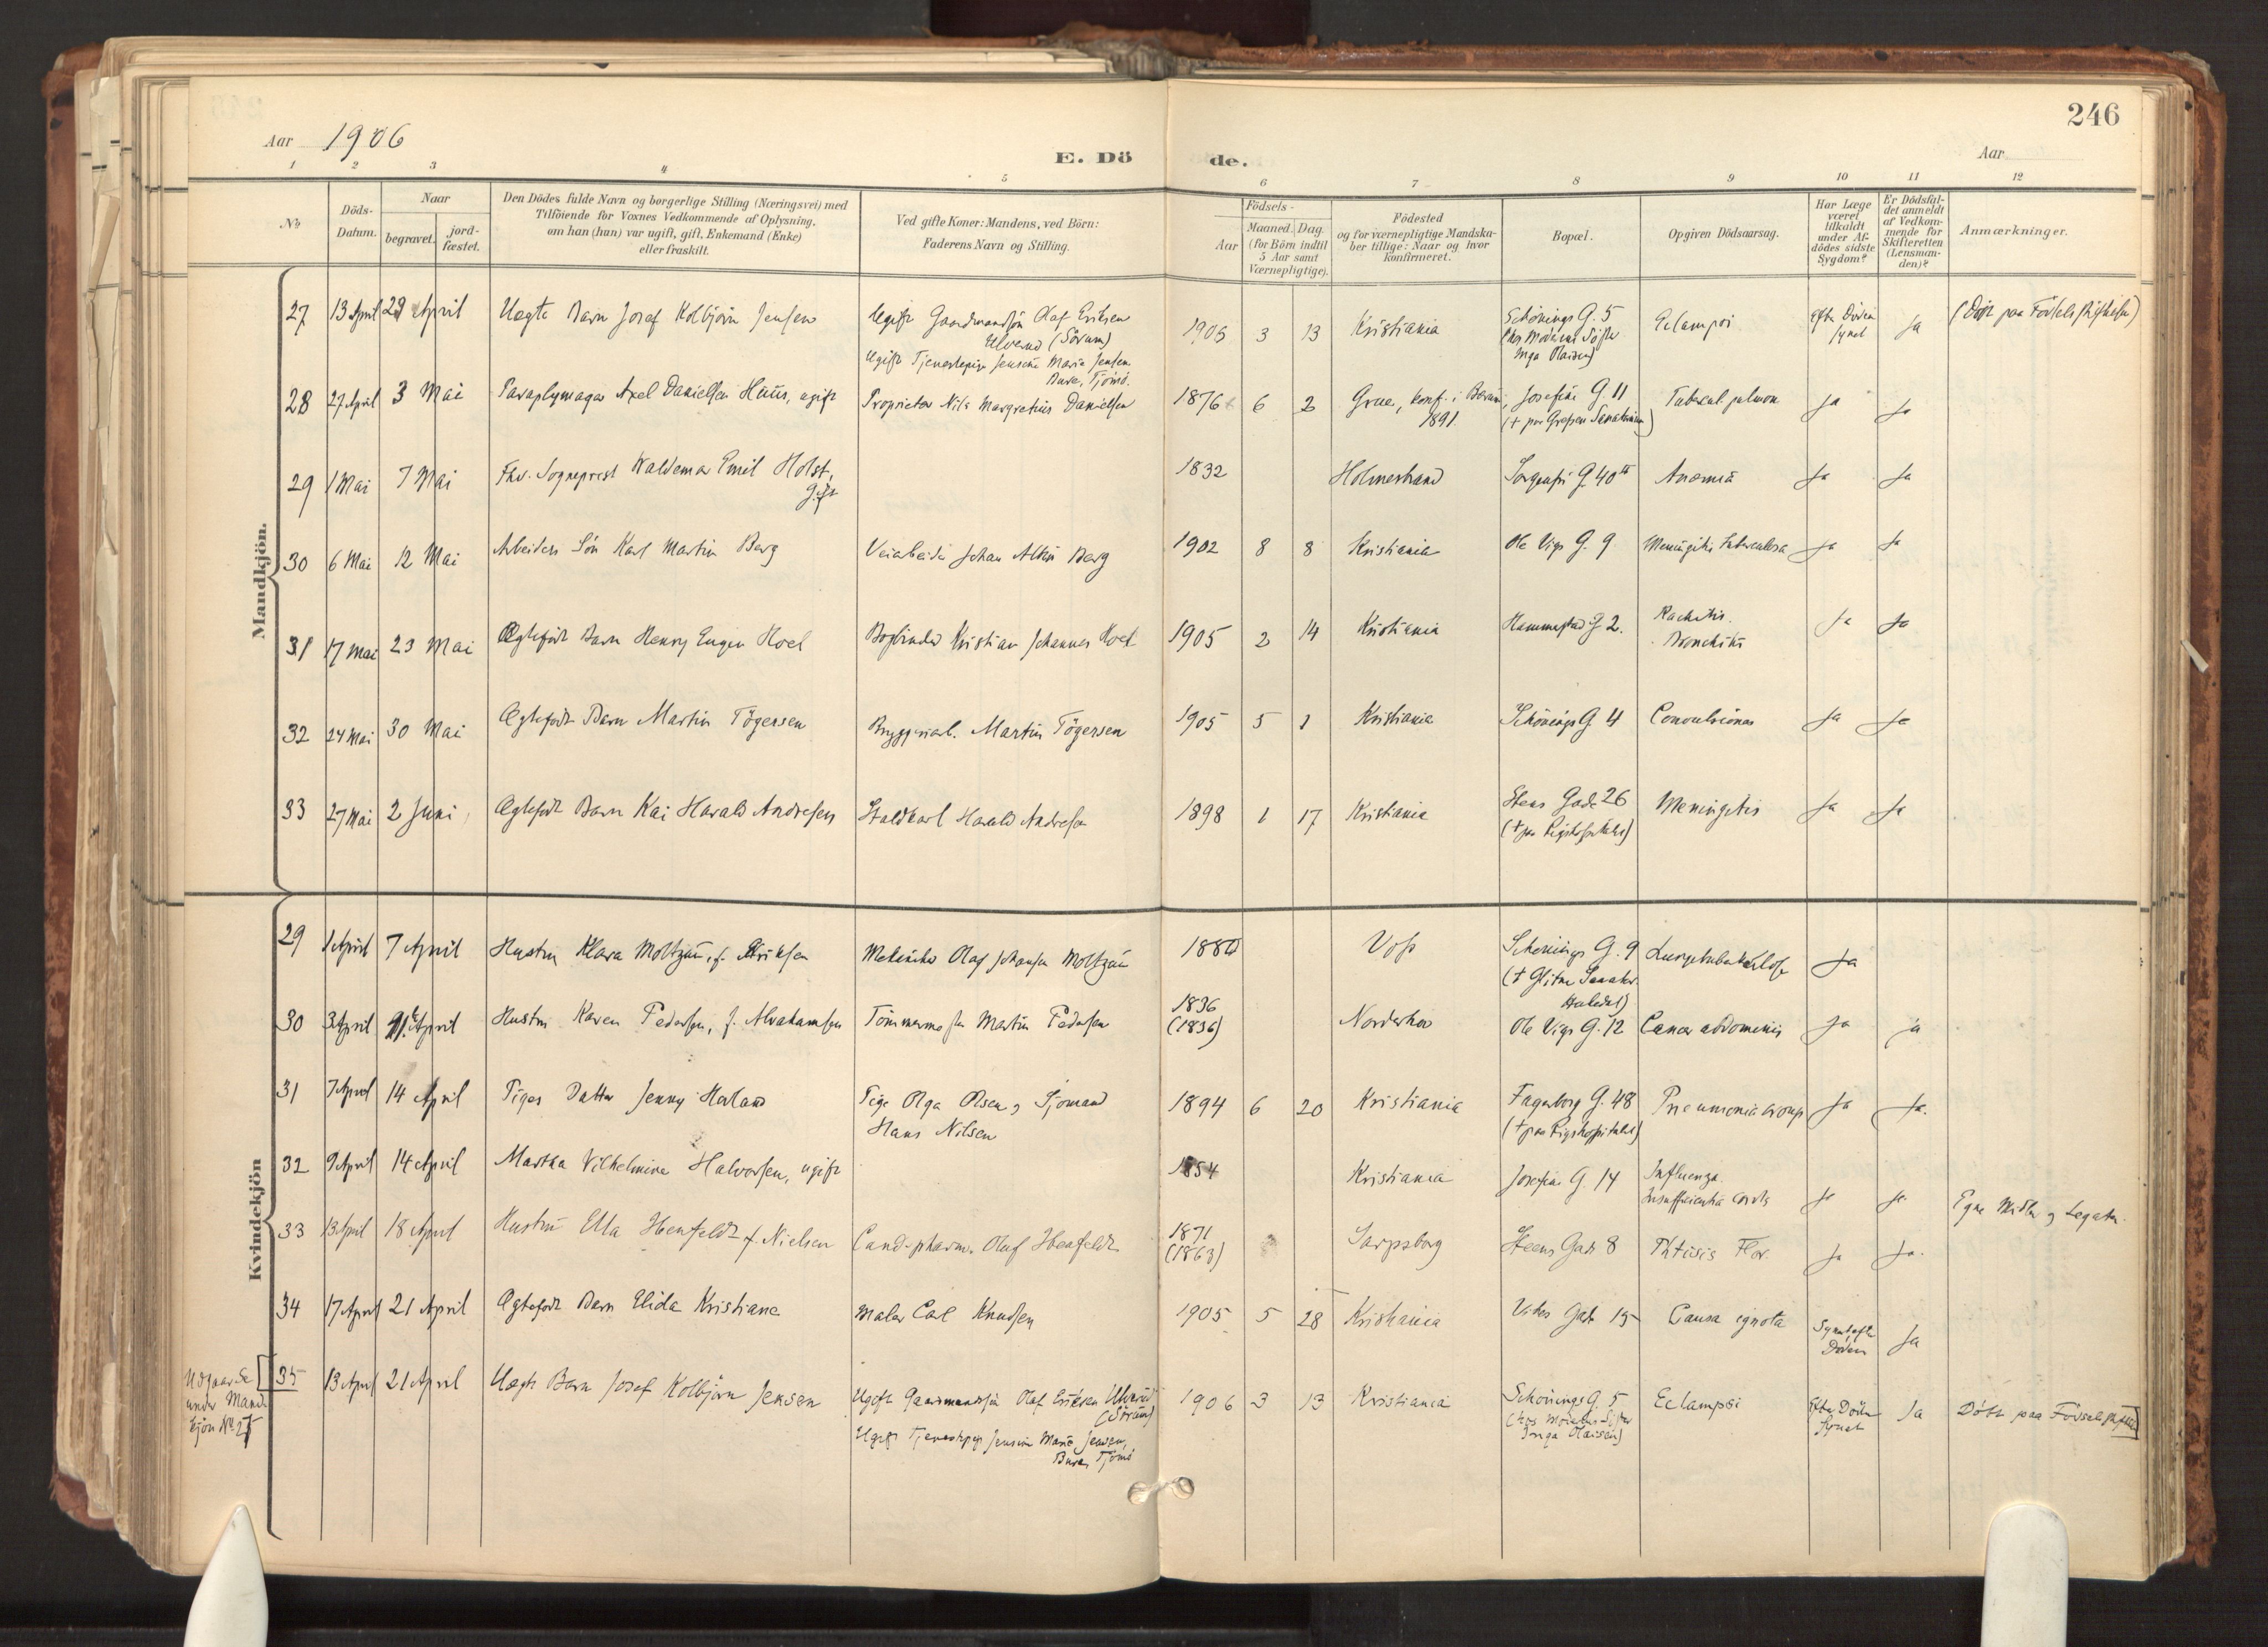 246
Aar 1906
E. Dö de.
Aar
1 2 3 4 5 6 7 8 9 10 11 12
No
Döds-Datum.
Naar
begravet. jord-fæstet.
Den Dödes fulde Navn og borgerlige Stilling (Næringsvei) med
Tilföiende for Voxnes Vedkommende af Oplysning,
om han (hun) var ugift, gift, Enkemand (Enke)
eller fraskilt.
Ved gifte Koner: Mandens, ved Börn:
Faderens Navn og Stilling.
Födsels-
Aar Maaned. Dag.
(for Börn indtil
5 Aar samt
Værnepligtige).
Födested
og for værnepligtige Mandska-
ber tillige: Naar og hvor
konfirmeret.
Bopæl.
Opgiven Dödsaarsag.
Har Læge
været
tilkaldt
under Af-
dödes sidste
Sygdom?
Er Dödsfal-
det anmeldt
af Vedkom-
mende for
Skifteretten
(Lensman-
den)?
Anmærkninger.
Mandkjön.
27 13 April 29 April Uægte Barn Josef Kolbjörn Jensen Ugift Gaardmandssön Olaf Eriksen 1906 3 13 Kristiania Schönings G. 5 Eclampsi Efter Döden Ja
Ulverud (Sörum) (hos Moderens Söster synet
Ugift Tjenestepige Jensine Marie Jensen Inga Olaisen)
Bure, Tjömö.
28 27 April 3 Mai Paraplymager Axel Danielsen Huus, ugift Proprietær Nils Margretius Danielsen 1876 6 2 Grue, konf. i Bærum, Josefine G. 11 Tubercul. pulmon Ja Ja
1891. (+ paa Grefsen Sanatorium)
29 1 Mai 7 Mai Fhv. Sogneprest Waldemar Emil Holst, 1832 Holmestrand Sorgenfri G. 40 II Anæmia Ja Ja
gift
30 6 Mai 12 Mai Arbeiders Sön Karl Martin Berg Veiarbeider Johan Albin Berg 1902 8 8 Kristiania Ole Vigs G. 9 Meningitis tuberculosa Ja Ja
31 17 Mai 23 Mai Ægtefödt Barn Henry Eugen Hoel Bogbinder Kristian Johannes Hoel 1905 2 14 Kristiania Hammerstad G 2. Rachitis. Ja Ja
Bronchitis
32 24 Mai 30 Mai Ægtefödt Barn Martin Tögersen Bryggeriarb. Martin Tögersen 1905 5 1 Kristiania Schönings G. 4 Convulsiones Ja Ja
33 27 Mai 2 Juni Ægtefödt Barn Kai Harald Andresen Staldkarl Harald Andresen 1898 1 17 Kristiania Stens Gade 26 Meningitis Ja Ja
(+ paa Rigshospitalet)
Kvindekjön
29 1 April 7 April Hustru Klara Moltzau, f. Eriksen Olaf Johansen Moltzau 1880 Voss Schönings G. 9 Lungetuberkulose Ja
(+ Glitre Sanator.
30 3 April April Hustru Karen Pedersen, f. Abrahamsen Martin Pedersen 1836 Norderhov Ole Vigs G. 12 Cancer abdominis Ja Ja
(1836)
31 7 April 14 April Piges Datter Jenny Harland Pige Olga Olsen og Sjömand 1894 6 20 Kristiania Fagerborg G. 48 Pneumonia croup Ja Ja.
Hans Nilsen (+ paa Rigshospitalet)
32 9 April 14 April Martha Vilhelmine Halvorsen, ugift 1854 Kristiania Josefine G. 14 Influenza. Ja Ja Egne Midler og Legater.
Insufficientia cordis
33 13 April 18 April Hustru Ella Ibenfeldt f. Nielsen Cand. pharm. Oluf Ibenfeldt 1871 Sarpsborg Steens Gade 8 Phtisis Flor. Ja Ja.
(1863)
34 17 April 21 April Ægtefödt Barn Elida Kristiane Maler Carl Knudsen 1905 5 28 Kristiania Vibes Gade 15 Causa ignota Synet efter Ja
Döden
35 13 April 21 April Uægte Barn Josef Kolbjörn Jensen Ugift Gaardmandssön Olaf Eriksen Ulverud 1906 3 13 Kristiania Schönings G. 5 Eclampsi Efter Döden Ja Död paa Födselsstiftelse
(Sörum) (hos Moderens Söster Synet
Ugift Tjenestepige Jensine Marie Jensen, Inga Olaisen)
Bure, Tjömö
Udgaar Se
under Mand-
kjön No 27
(Död paa Födselsstiftelsen)